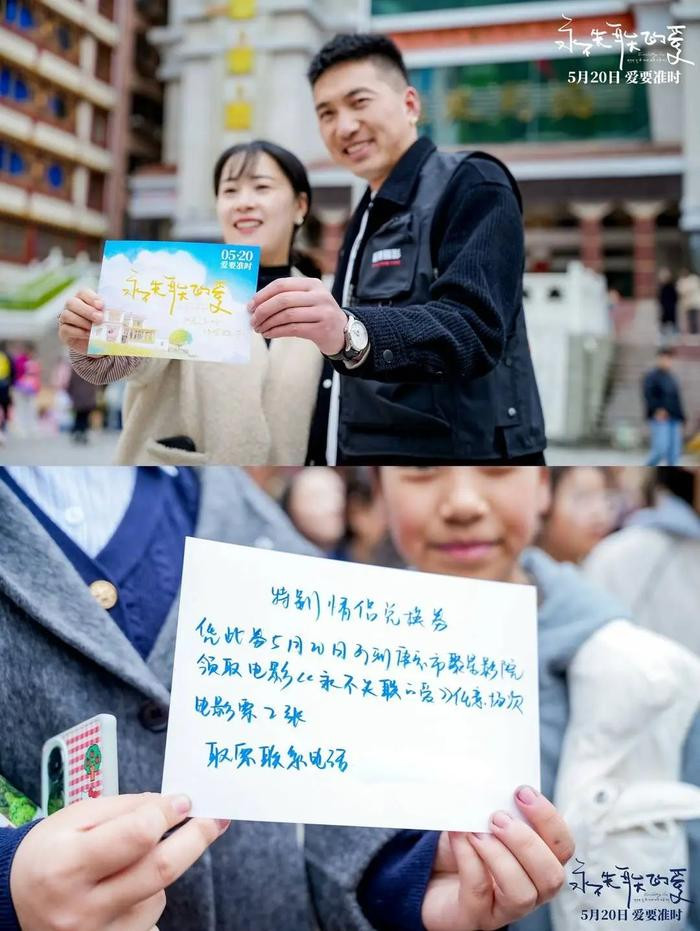 永不失联的爱
5月20日 爱要准时
05·20
爱要准时
永不失联的爱
特别情侣兑换券
凭此券5月20日可到康定市聚星影院
领取电影《永不失联的爱》任意场次
电影票2张
取票联系电话
永不失联的爱
5月20日 爱要准时